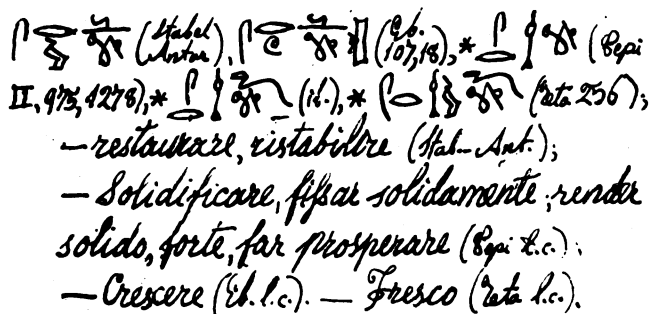 (Stabel Antar), (Eb. 107,18), * (Pepi
II, 975, 1278), * (ib.), * (Teta 256);
— restaurare, ristabilire (Stab-Ant.);
— Solidificare, fissar solidamente; render
solido, forte, far prosperare (Pepi l.c.);
— Crescere (Eb. l.c.). — Fresco (Teta l.c.).